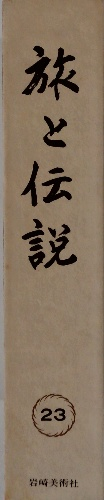 旅と伝説
岩崎美術社
23